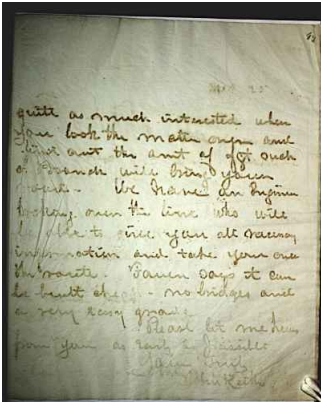 quite as much interested when
you look the matter over and
find out the amt of frt such
a Branch will bring your
road. We have an Engineer
looking over the line who will
be able to give you all necessary
information and take you over
the route. says it can
be built cheap - no bridges and
a very easy grade
Please let me hear
from you as early as possible
Yours truly
John Keith